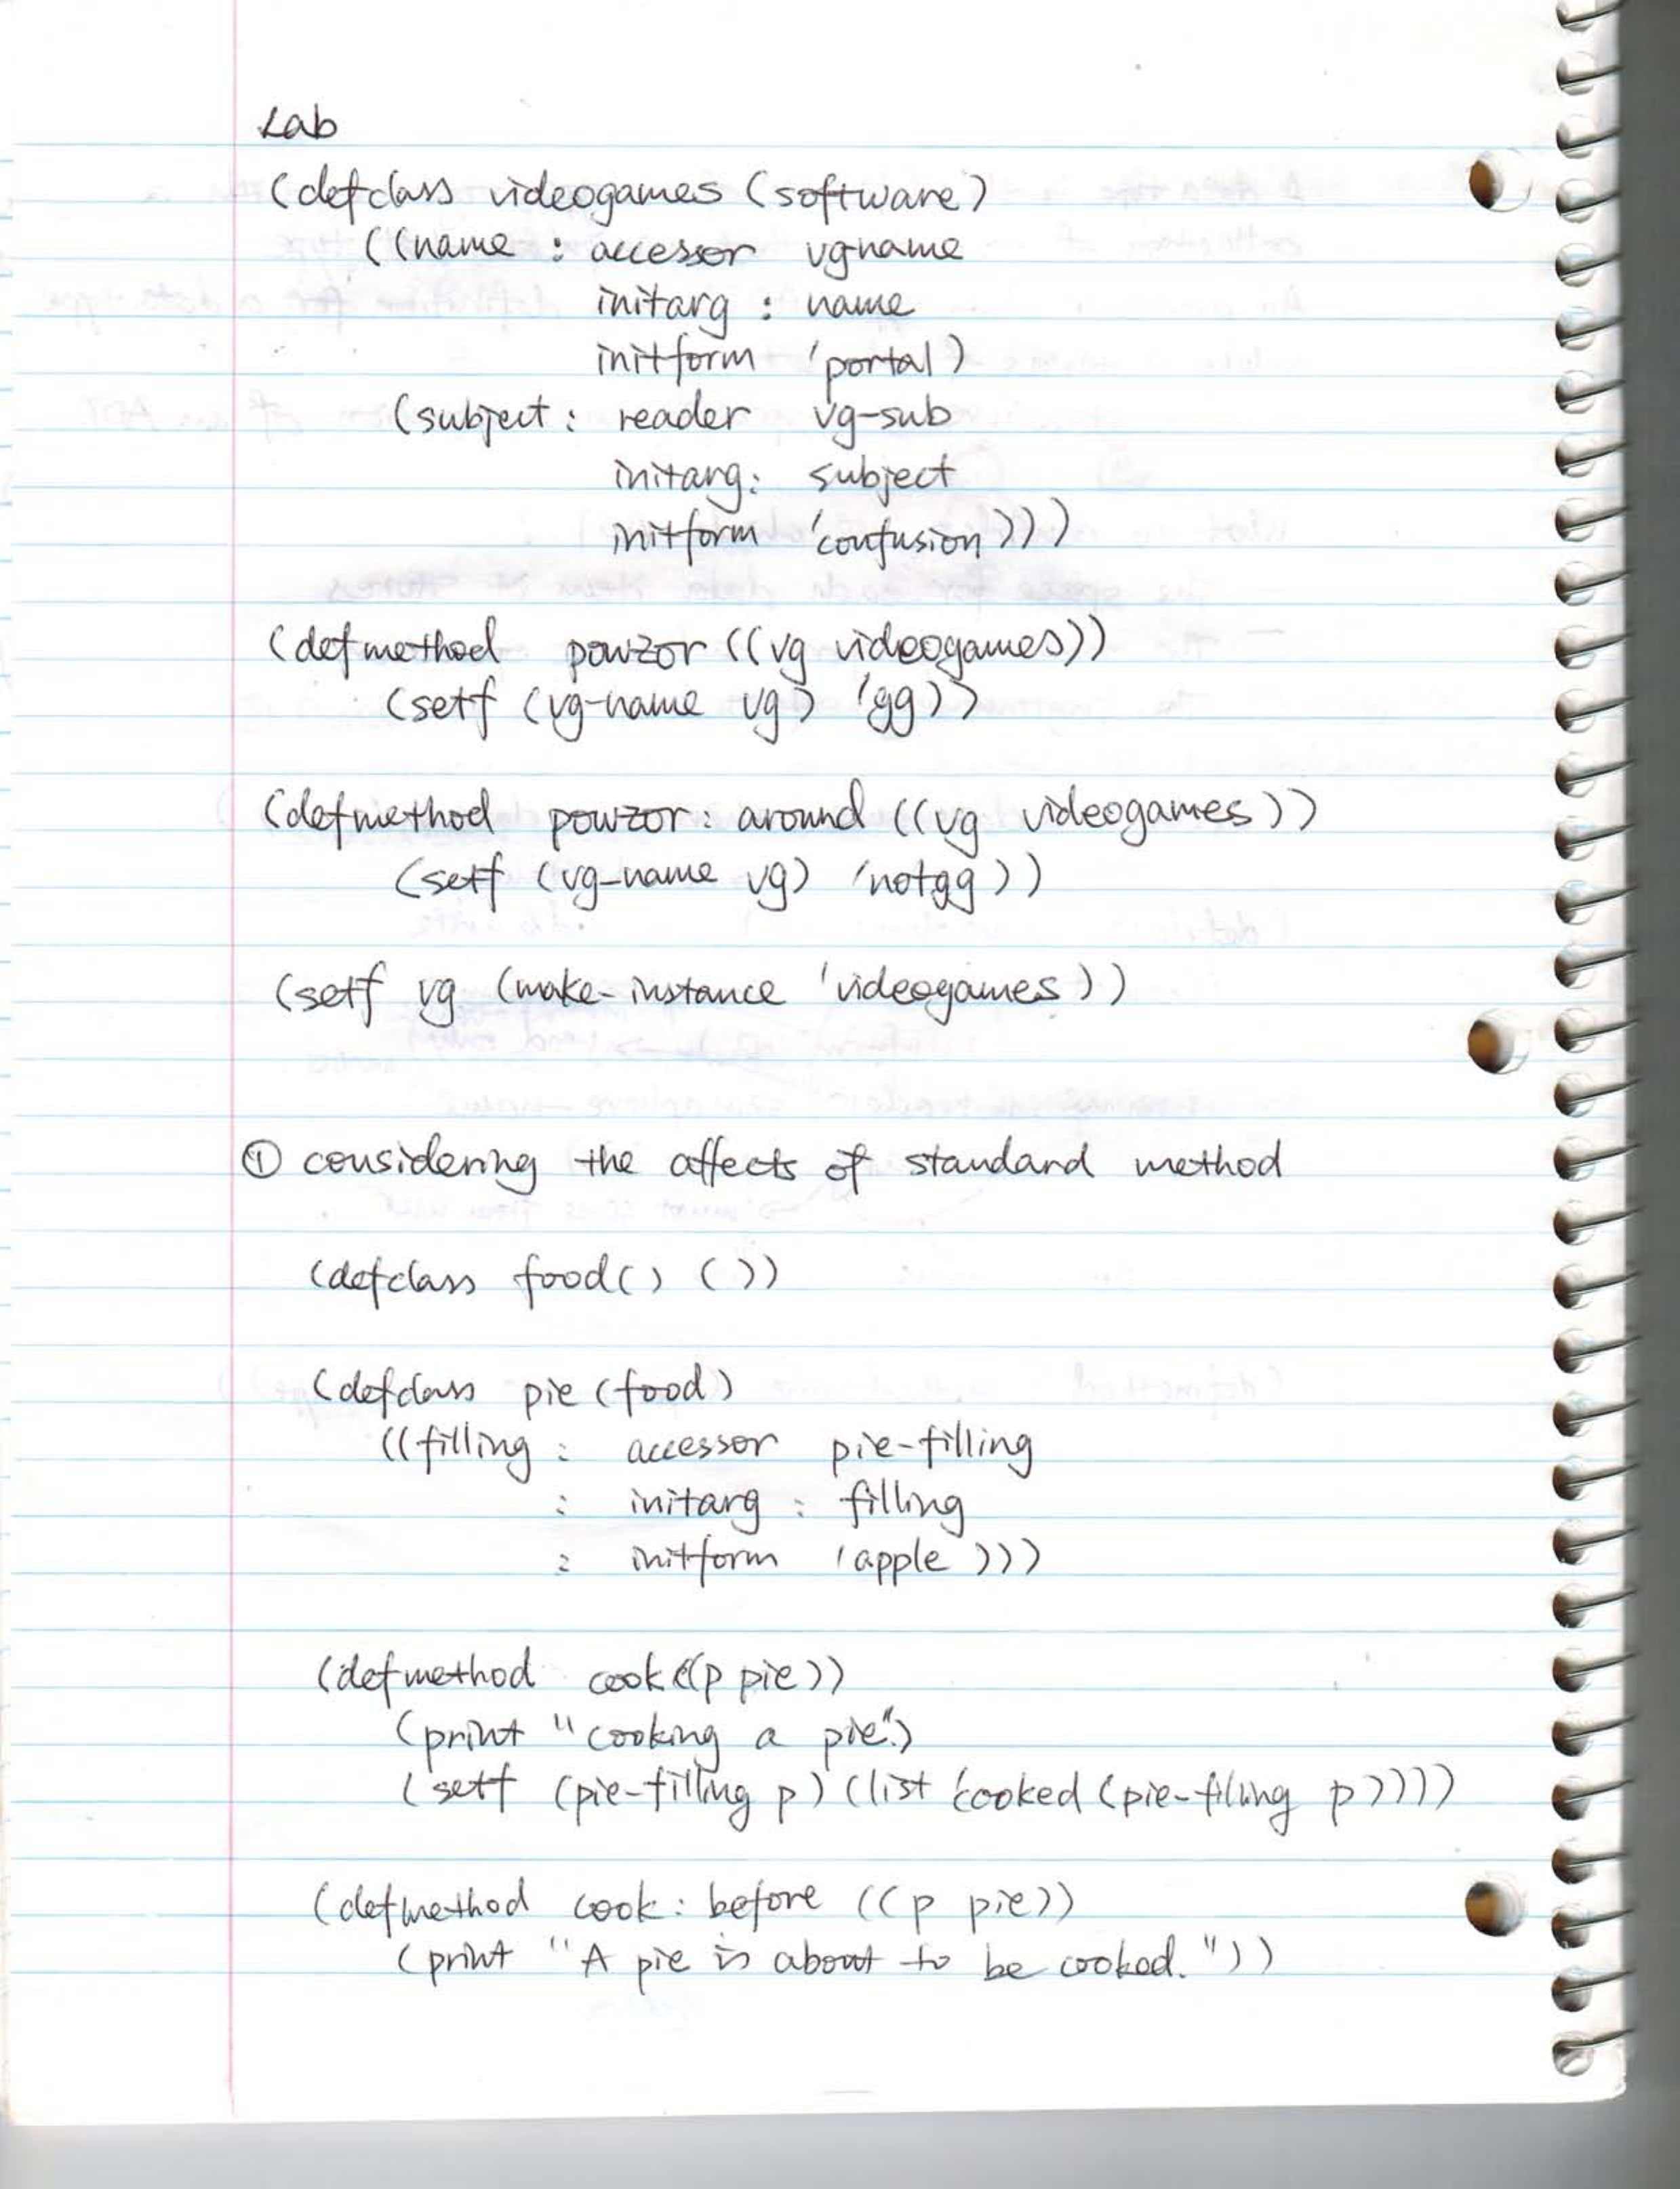 Lab
(defclass videogames (software)
((name : accessor vgname
initarg : name
initform 'portal)
(subject : reader vg-sub
initarg: subject
initform 'confusion)))
(defmethod powzor ((vg videogames))
(setf (vg-name vg) 'gg))
(defmethod powzor: around ((vg videogames))
(setf (vg-name vg) 'notgg))
(setf vg (make-instance 'videogames))
① considering the affects of standard method
(defclass food() ())
(defclass pie (food)
((filling : accessor pie-filling
: initarg : filling
: initform 'apple)))
(defmethod cook ((p pie))
(print "cooking a pie.")
(setf (pie-filling p) (list 'cooked (pie-filling p))))
(defmethod cook: before ((p pie))
(print "A pie is about to be cooked."))